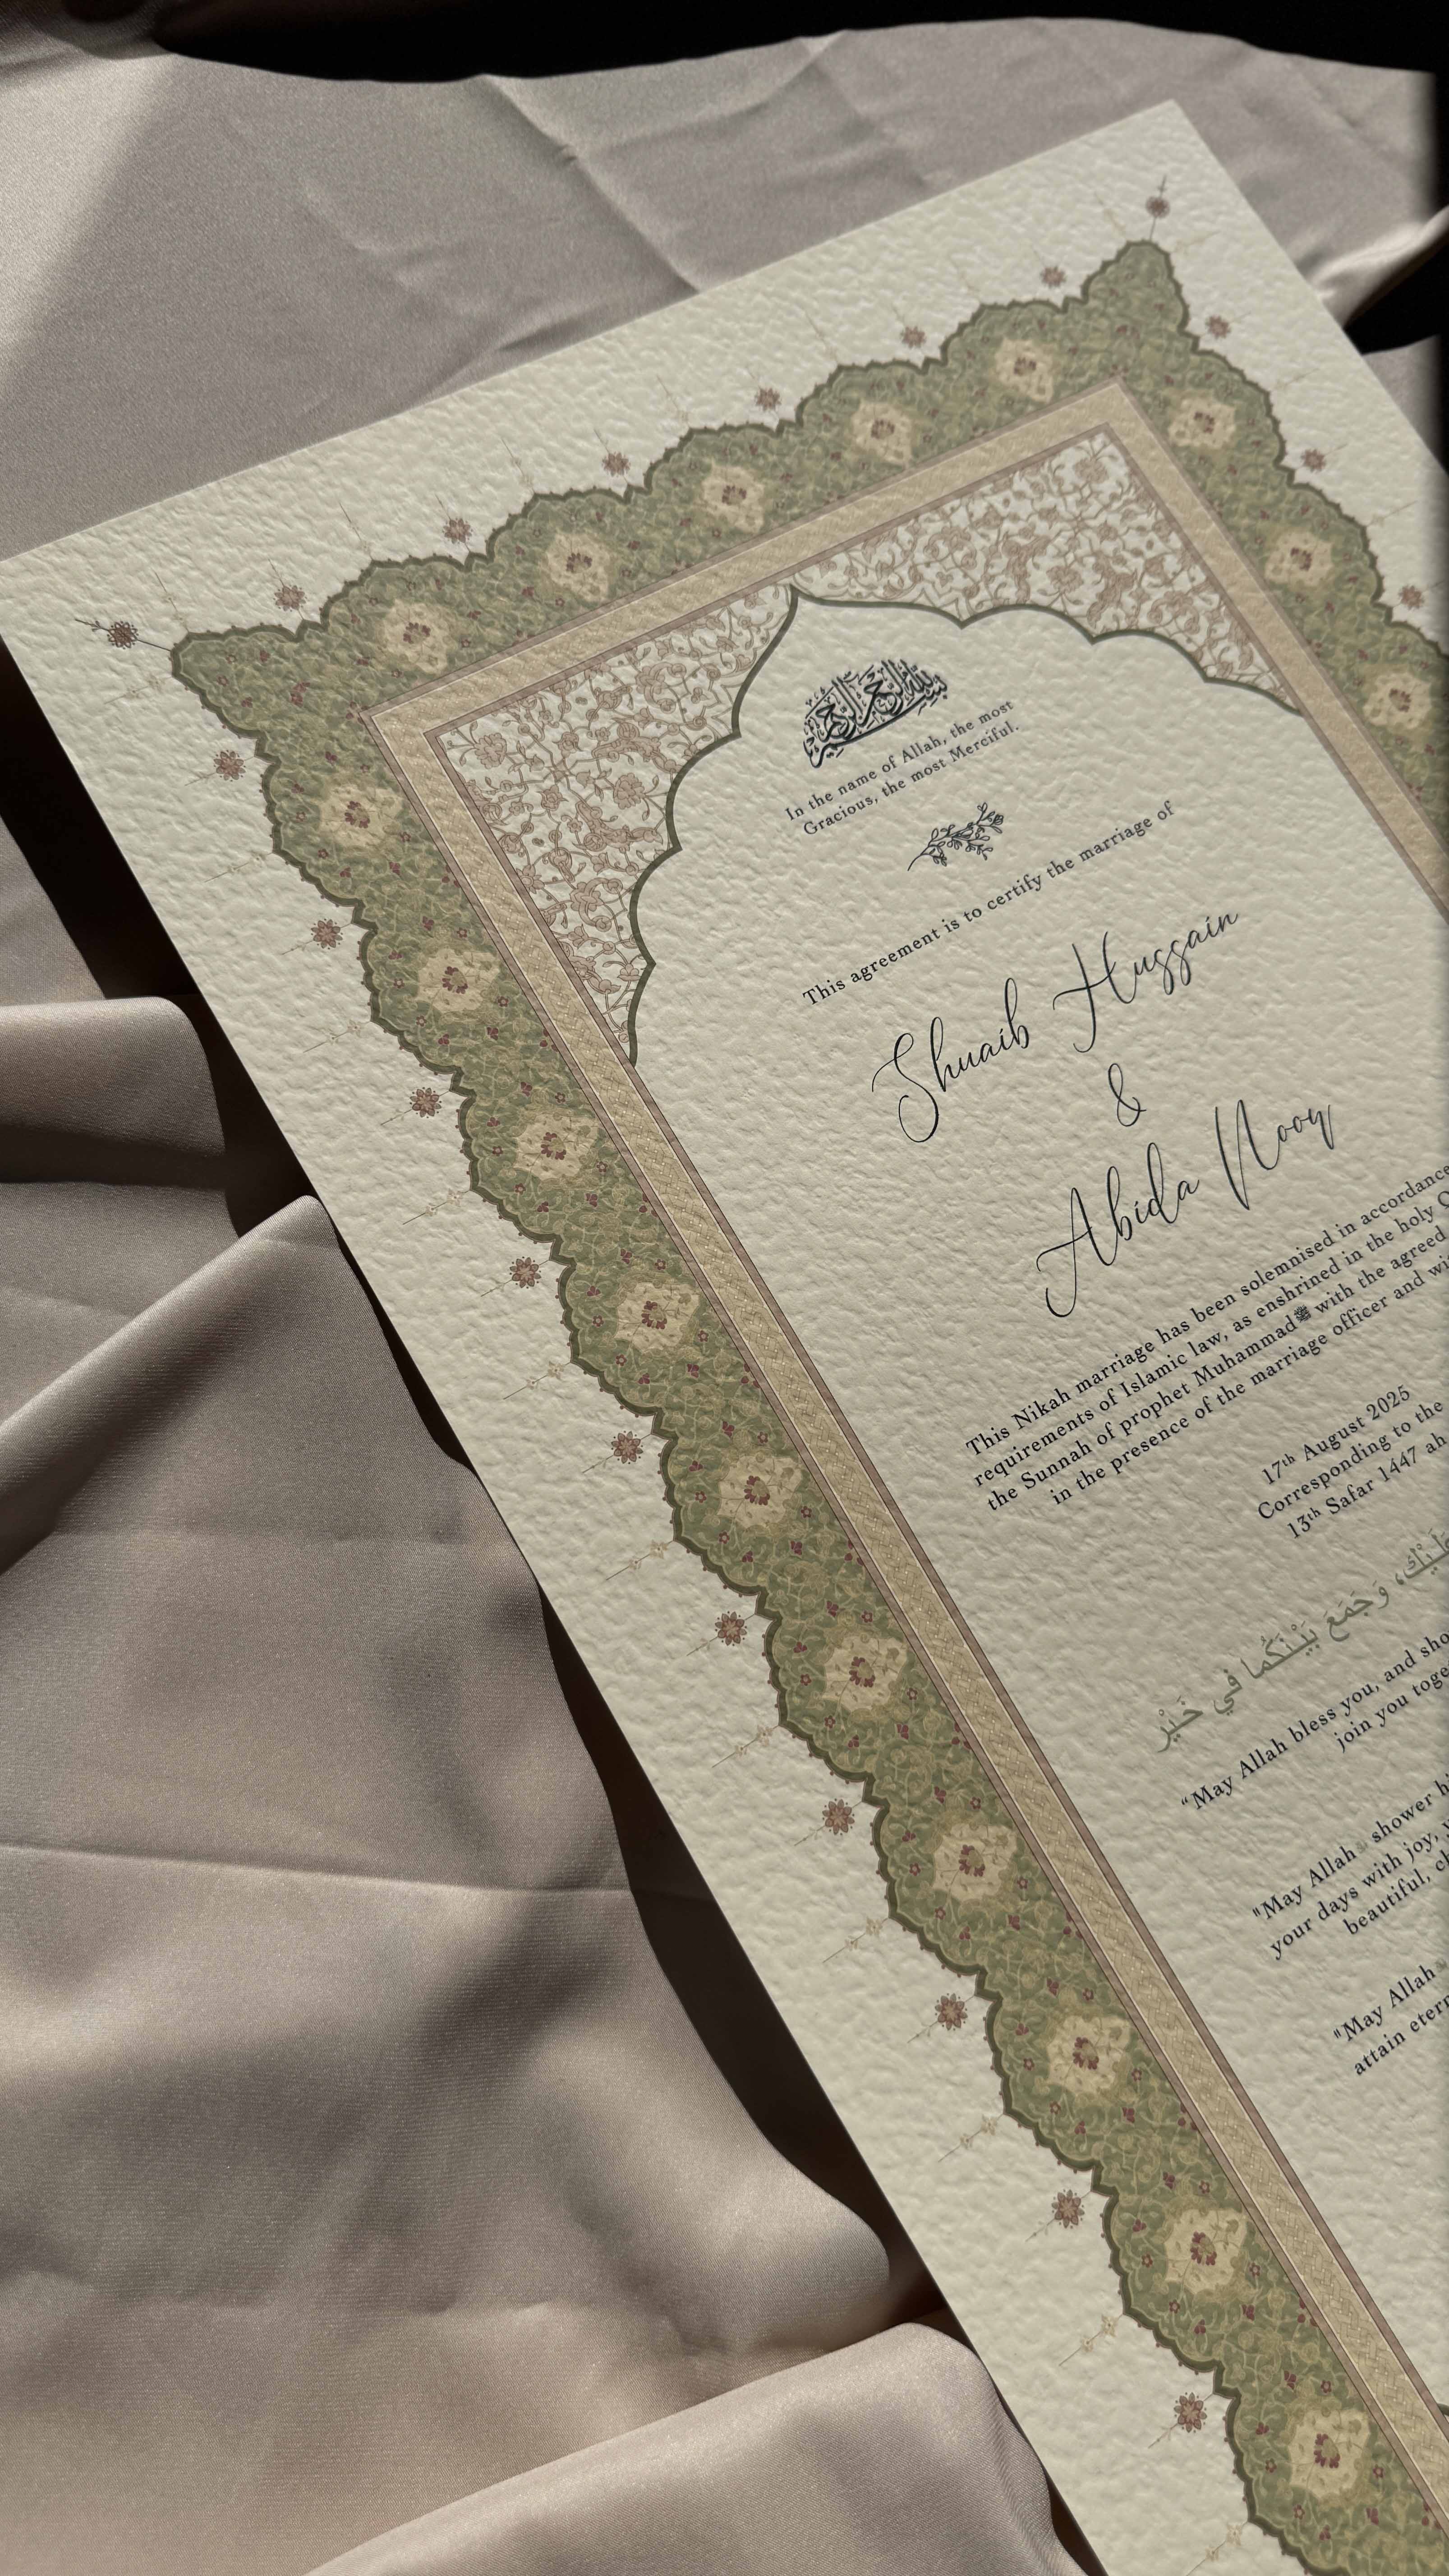 بسم الله الرحمن الرحيم
In the name of Allah, the most
Gracious, the most Merciful.
This agreement is to certify the marriage of
Shuaib Hussain
&
Abida Noor
This Nikah marriage has been solemnised in accordance
requirements of Islamic law, as enshrined in the holy
the Sunnah of prophet Muhammadﷺ with the agreed
in the presence of the marriage officer and
17th August 2025
Corresponding to the
13th Safar 1447 ah
وَجَمَعَ بَيْنَكُمَا فِي خَيْرْ
“May Allah bless you, and
join you
"May Allah shower
your days with joy,
beautiful,
"May Allah
attain